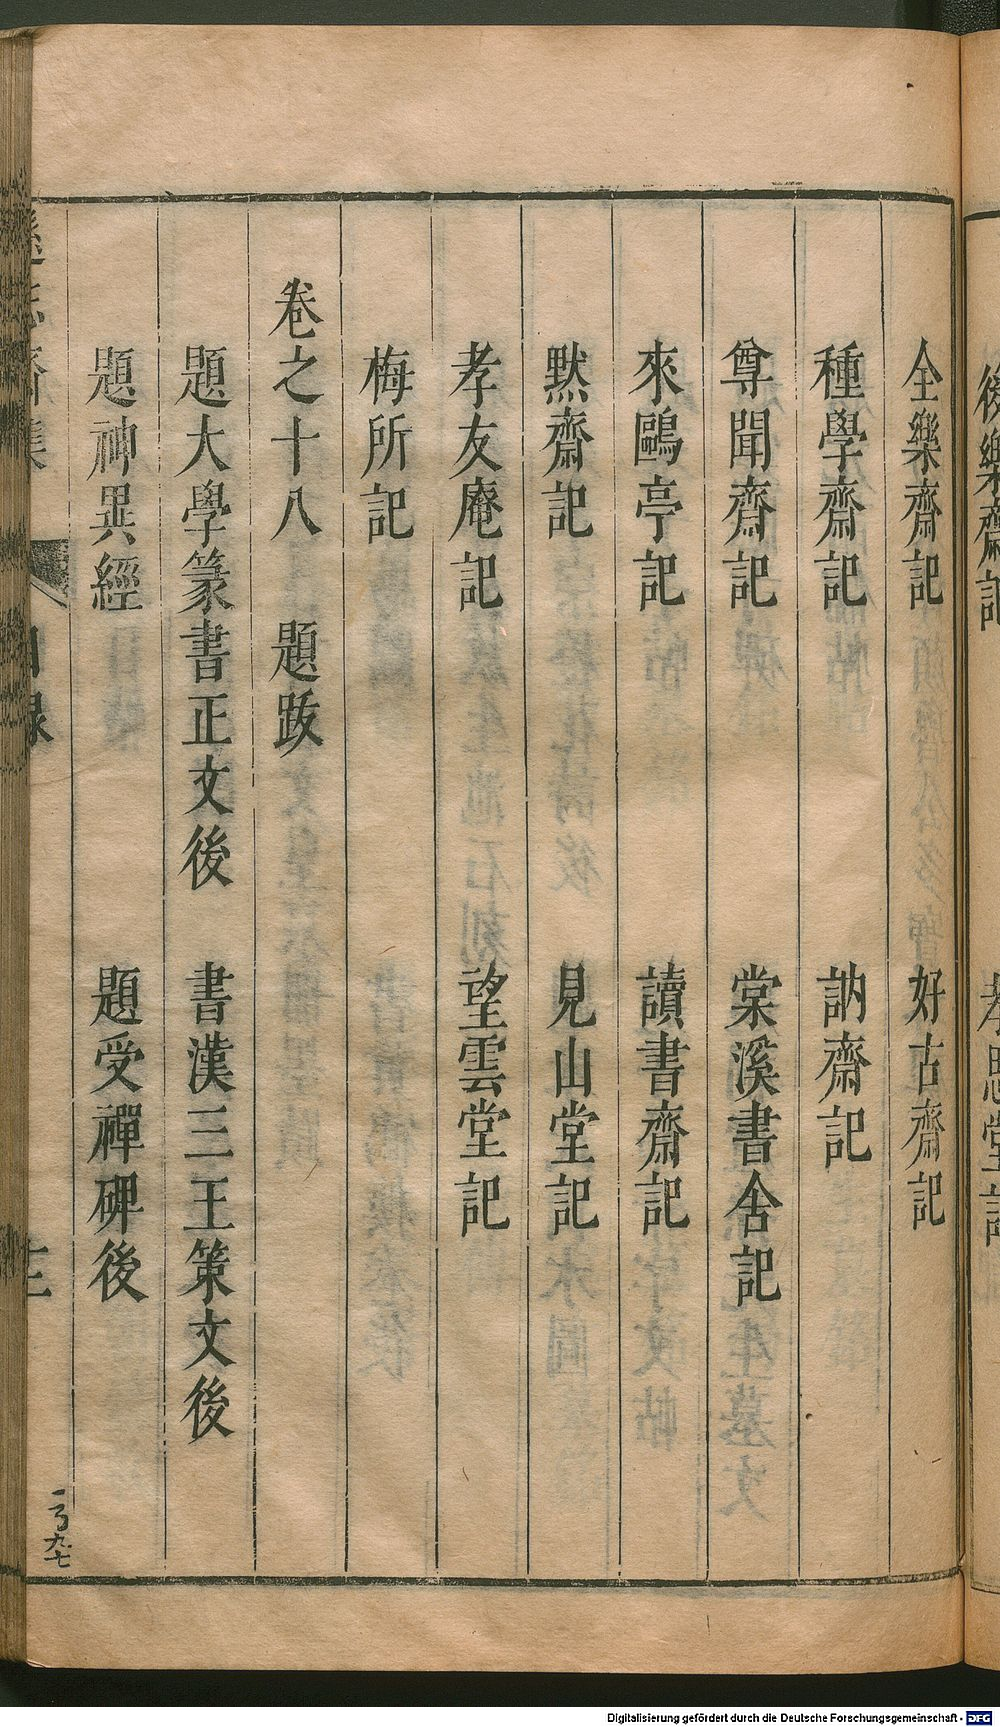 全樂齋記　好古齋記
種學齋記　訥齋記
尊聞齋記　棠溪書舍記
來鷗亭記　讀書齋記
默齋記　見山堂記
孝友庵記　望雲堂記
梅所記
卷之十八　題跋
題大學篆書正文後　書漢三王策文後
題神異經　題受禪碑後
Digitalisierung gefördert durch die Deutsche Forschungsgemeinschaft - DFG